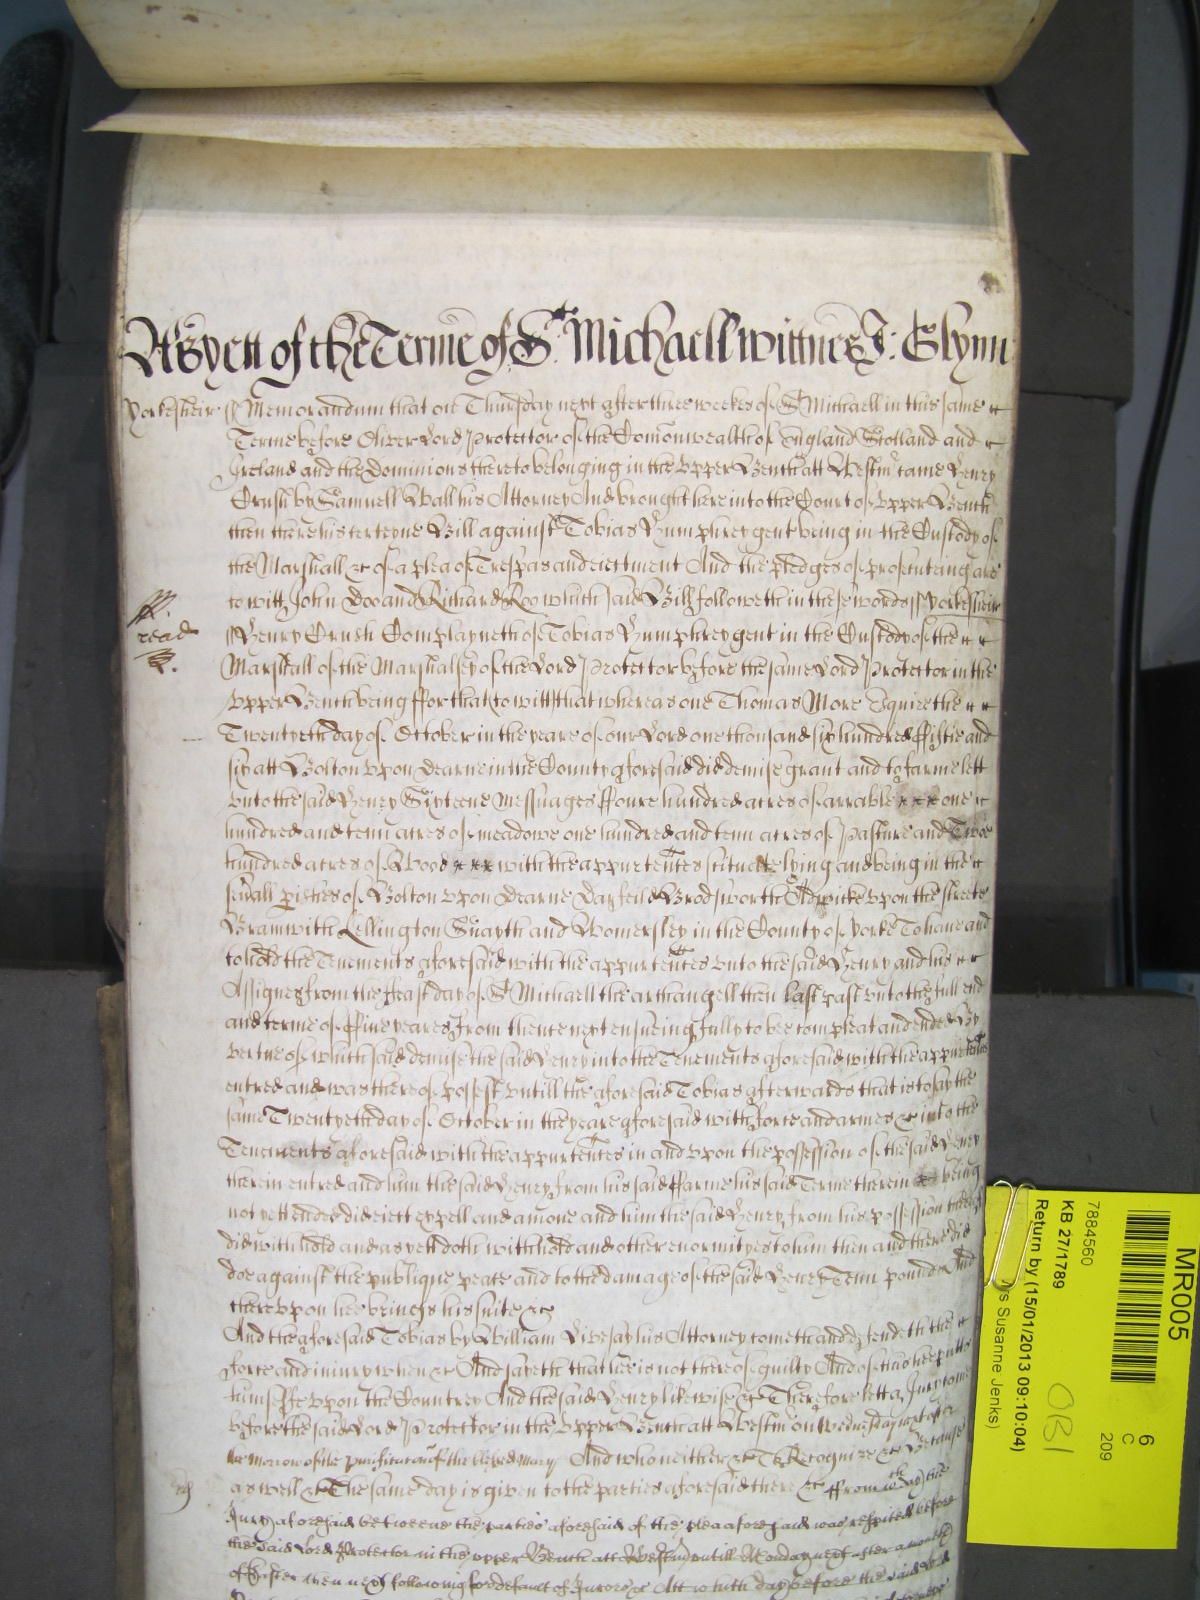 As yett of the Terme of St. Michaell wittnes J: Glynn
Yorkesheir Memorandum that on Thursday next after three weekes of St Michaell in this same
Terme before Oliver Lord Protector of the Comonwealth of England Scotland and
Ireland and the Dominions thereto belonging in the Upper Bench att Westmr came Henry
Crush by Samuell Wall his Attorney And brought here into the Court of Upper Bench
then there his certeyne Bill against Tobias Humphrey gent being in the Custody of
the Marshall &c of a plea of Trespas and eiectment And the pledges of prosecuteing are
to witt John Doo and Richard Roo which said Bill followeth in these words ss Yorkesheir
read
ss Henry Crush Complayneth of Tobias Humphrey gent in the Custody of the
Marshall of the Marshalsey of the Lord Protector before the same Lord Protector in the
Upper Bench being ffor that (to witt) that whereas one Thomas More Esquier the
Twentyeth day of October in the yeare of our Lord one thousand six hundred ffiftie and
six att Bolton upon Dearne in the County aforesaid did demise grant and to farme lett
unto the said Henry Sixteene Messuages ffoure hundred acres of arrable one
hundred and tenn acres of meadowe one hundred and tenn acres of Pasture and Twoe
hundred acres of Wood with the appurtences scituate lying and being in the
severall pishes of Bolton upon Dearne Darfeild Brodsworth Adwicke upon the streete
Bramwith Kellington Snayth and Womersley in the County of Yorke To have and
to hold the Tenements aforesaid with the appurtences unto the said Henry and his
Assignes from the ffeast day of St Michaell the archangell then last past unto the full end
and terme of ffive yeares from thence next ensueing fully to bee compleat and ended By
vertue of which said demise the said Henry into the Tenements aforesaid with the appurtences
entred and was thereof possest untill the aforesaid Tobias afterwards that is to say the
same Twentyeth day of October in the yeare aforesaid with force and armes &c into the
Tenements aforesaid with the appurtences in and upon the possession of the said Henry
therein entred and him the said Henry from his said ffarme his said Terme therein being
not yett ended did eiect expell and amove and him the said Henry from his possession thereof
did with hold and as yett doth with hold and other enormityes to him then and there did
doe against the publique peace and to the damage of the said Henry Tenn pounds And
thereupon hee brings his suite &c
And the aforesaid Tobias by William Livesay his Attorney cometh and defendeth the
force and iniury when &c And sayeth that hee is not thereof guilty And of this hee putts
himselfe upon the Countrey And the said Henry likewise &c Therefore lett a Jury come
before the said Lord Protector in the Upper Bench att Westmr on Wednesday next after
the Morrow of the purificacon of the blessed Mary And who neither &c To Recognize &c Because
as well &c The same day is given to the parties aforesaid there &c ffrom wch day the
Jury aforesaid betweene the parties aforesaid of the plea aforesaid was respited before
the said Lord Protector in the upper Bench att Westmr untill Monday next after a moneth
of Easter then next following for default of Jurors &c Att which day before the said Lord
MR005
6
C
209
7884560
KB 27/1789
Return by (15/01/2013 09:10:04)
Susanne Jenks)
OBI